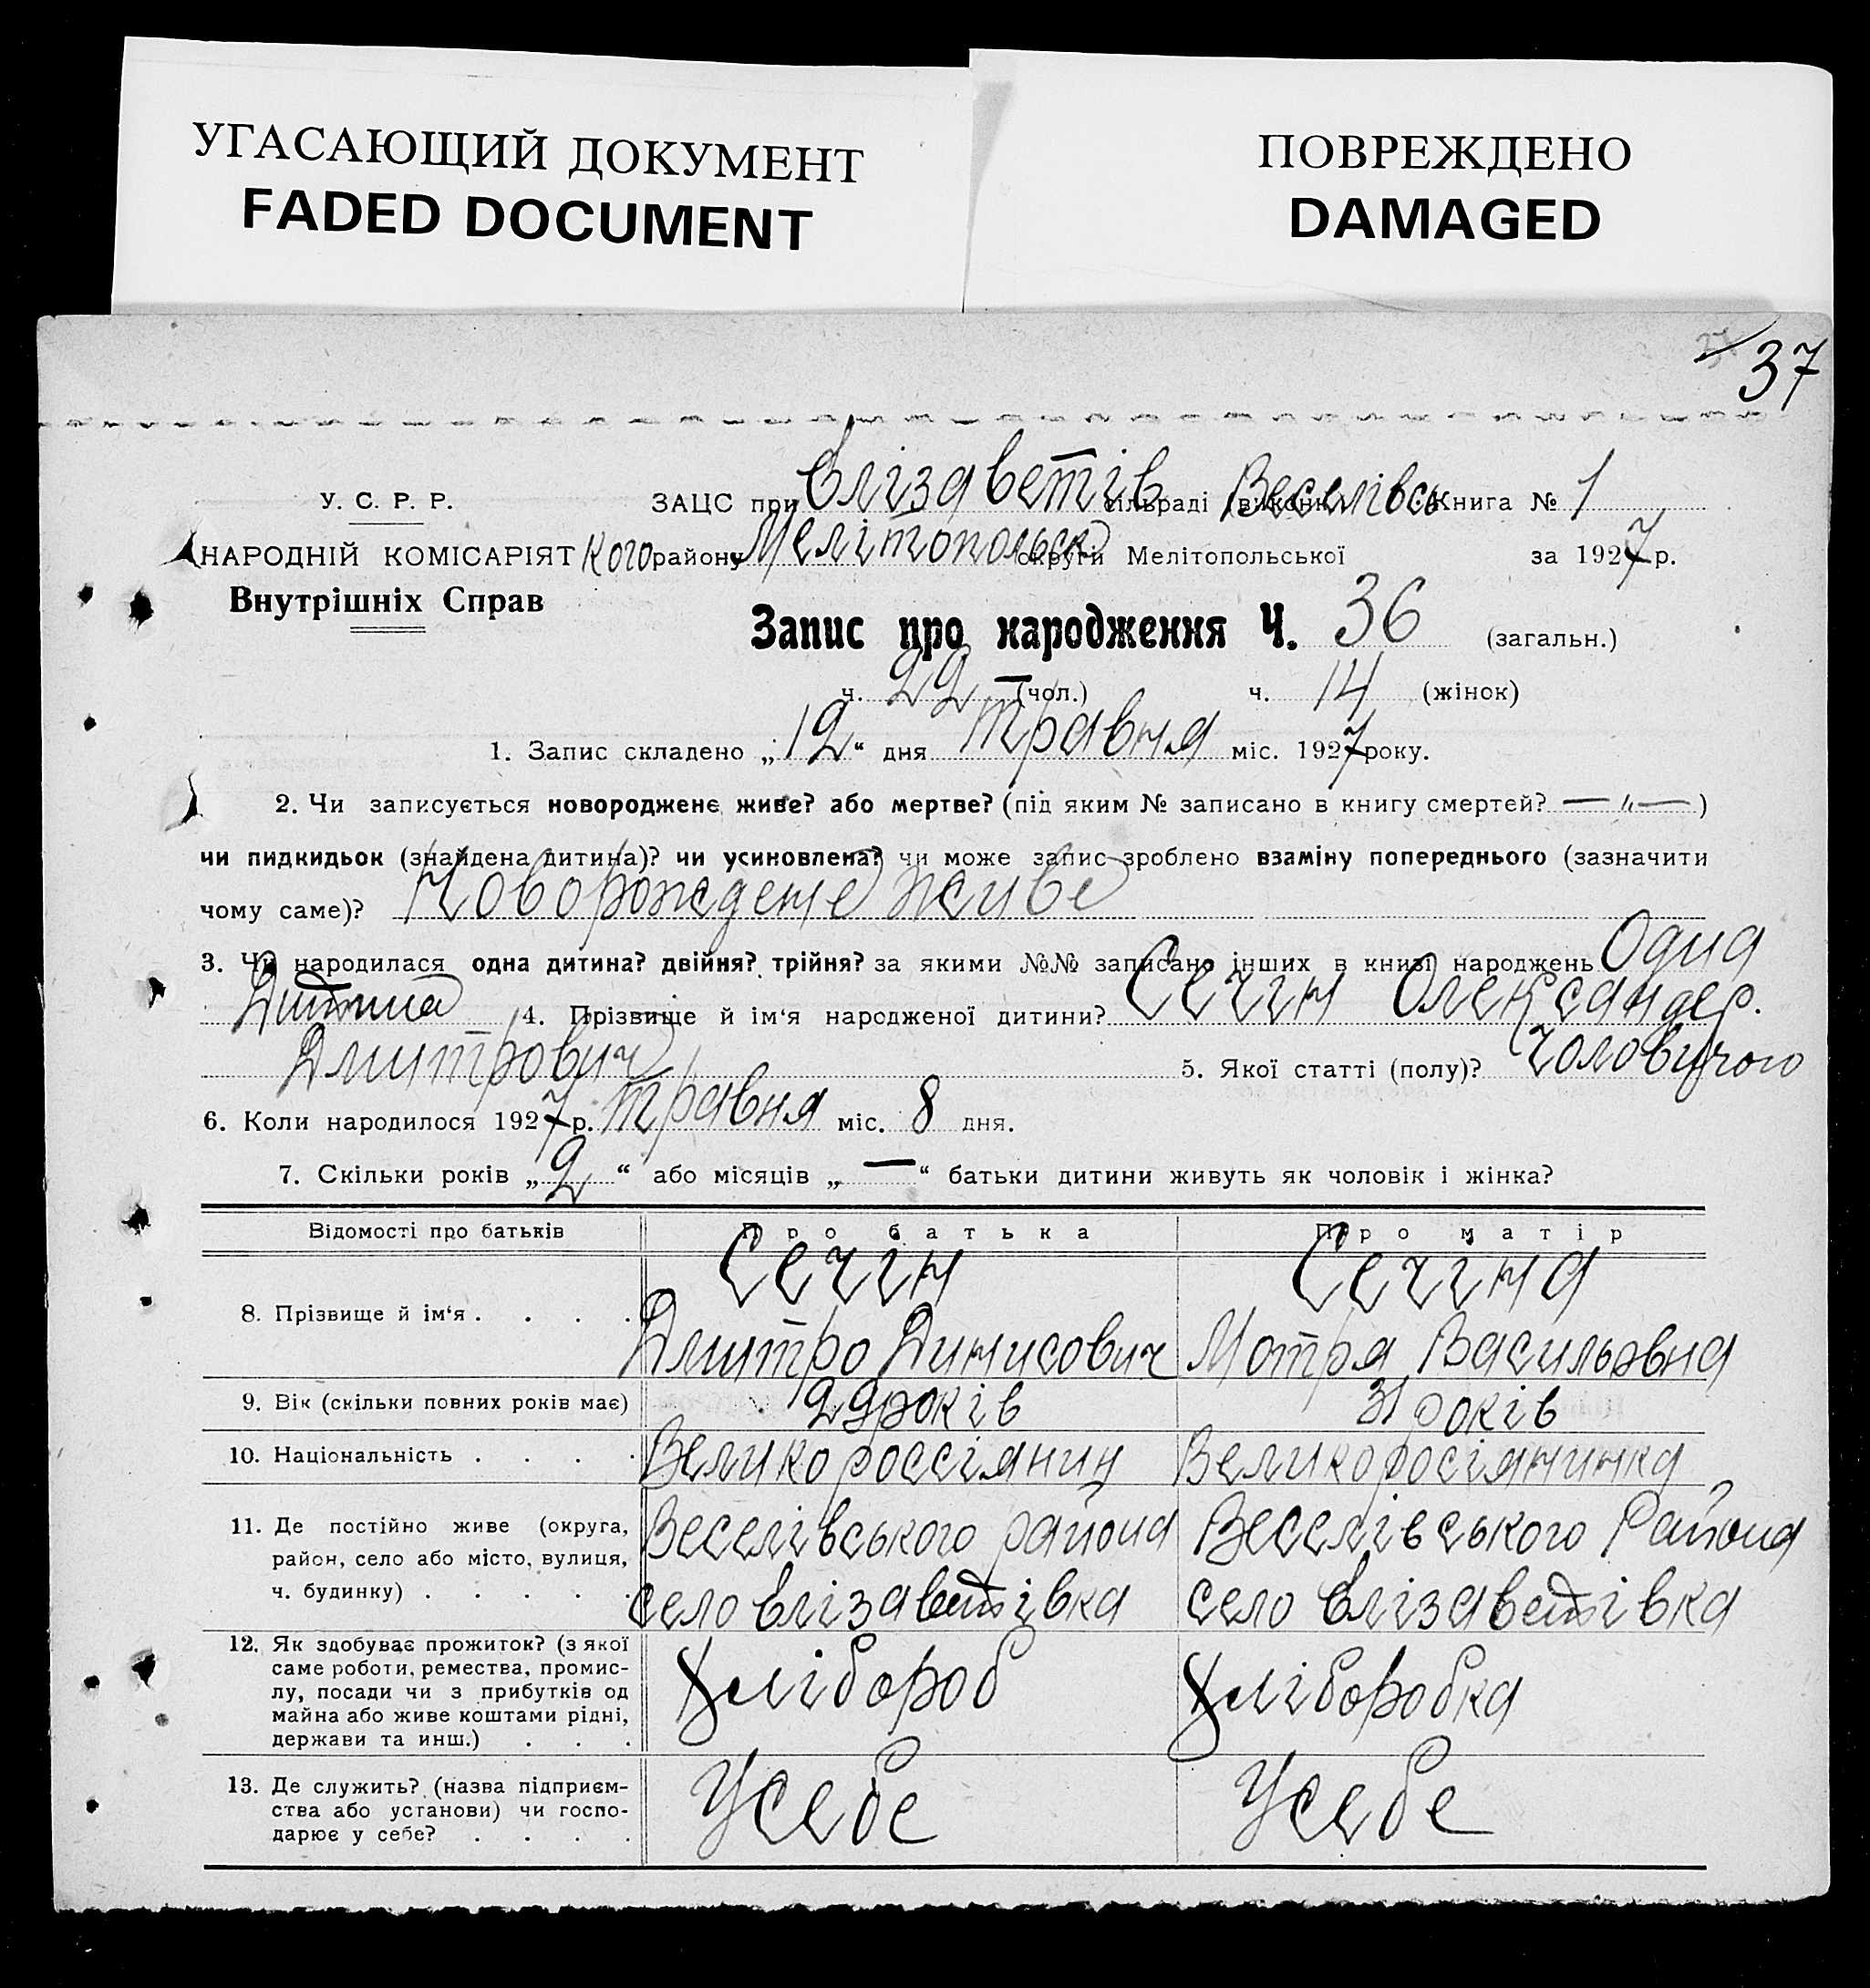 УГАСАЮЩИЙ ДОКУМЕНТ
FADED DOCUMENT
ПОВРЕЖДЕНО
DAMAGED
37
У. С. Р. Р. ЗАЦС при Єлізаветів сільраді (виконк.) Веселівсь Книга № 1
НАРОДНІЙ КОМІСАРІЯТ кого району Мелітопольск округи Мелітопольської за 1927 р.
Внутрішніх Справ
Запис про народження Ч. 36 (загальн.)
ч. 22 — (чол.) ч. 14 (жінок)
1. Запис складено „12“ дня травня міс. 1927 року.
2. Чи записується новороджене живе? або мертве? (під яким № записано в книгу смертей? — „ — )
чи пидкидьок (знайдена дитина)? чи усиновлена? чи може запис зроблено взаміну попереднього (зазначити
чому саме)? Новорождене живе
3. Чи народилася одна дитина? двійня? трійня? за якими №№ записано інших в книзі народжень Одна
Дитина 4. Прізвище й ім'я народженої дитини? Сечін Олександер.
Дмитрович 5. Якої статті (полу)? чоловичого
6. Коли народилося 1927 р. травня міс. 8 дня.
7. Скільки років „2“ або місяців „—“ батьки дитини живуть як чоловік і жінка?
Відомості про батьків Про батька Про матір
Сечін Сечіна
8. Прізвище й ім‘я . . . . Дмитро Динисович Мотря Васильовна
9. Вік (скільки повних років має) 29 років 31 років
10. Національність . . . . Великороссіянин Великоросіянинка
11. Де постійно живе (округа, Веселівського района Веселівського Района
район, село або місто, вулиця,
ч. будинку) . . . . . село Єлізаветівка село Єлізаветівка
12. Як здобуває прожиток? (з якої
саме роботи, ремества, промис- Хлібороб Хліборобка
лу, посади чи з прибутків од
майна або живе коштами рідні,
держави та инш.) . . .
13. Де служить? (назва підприєм- Усебе Усебе
ства або установи) чи госпо-
дарює у себе? . . . .